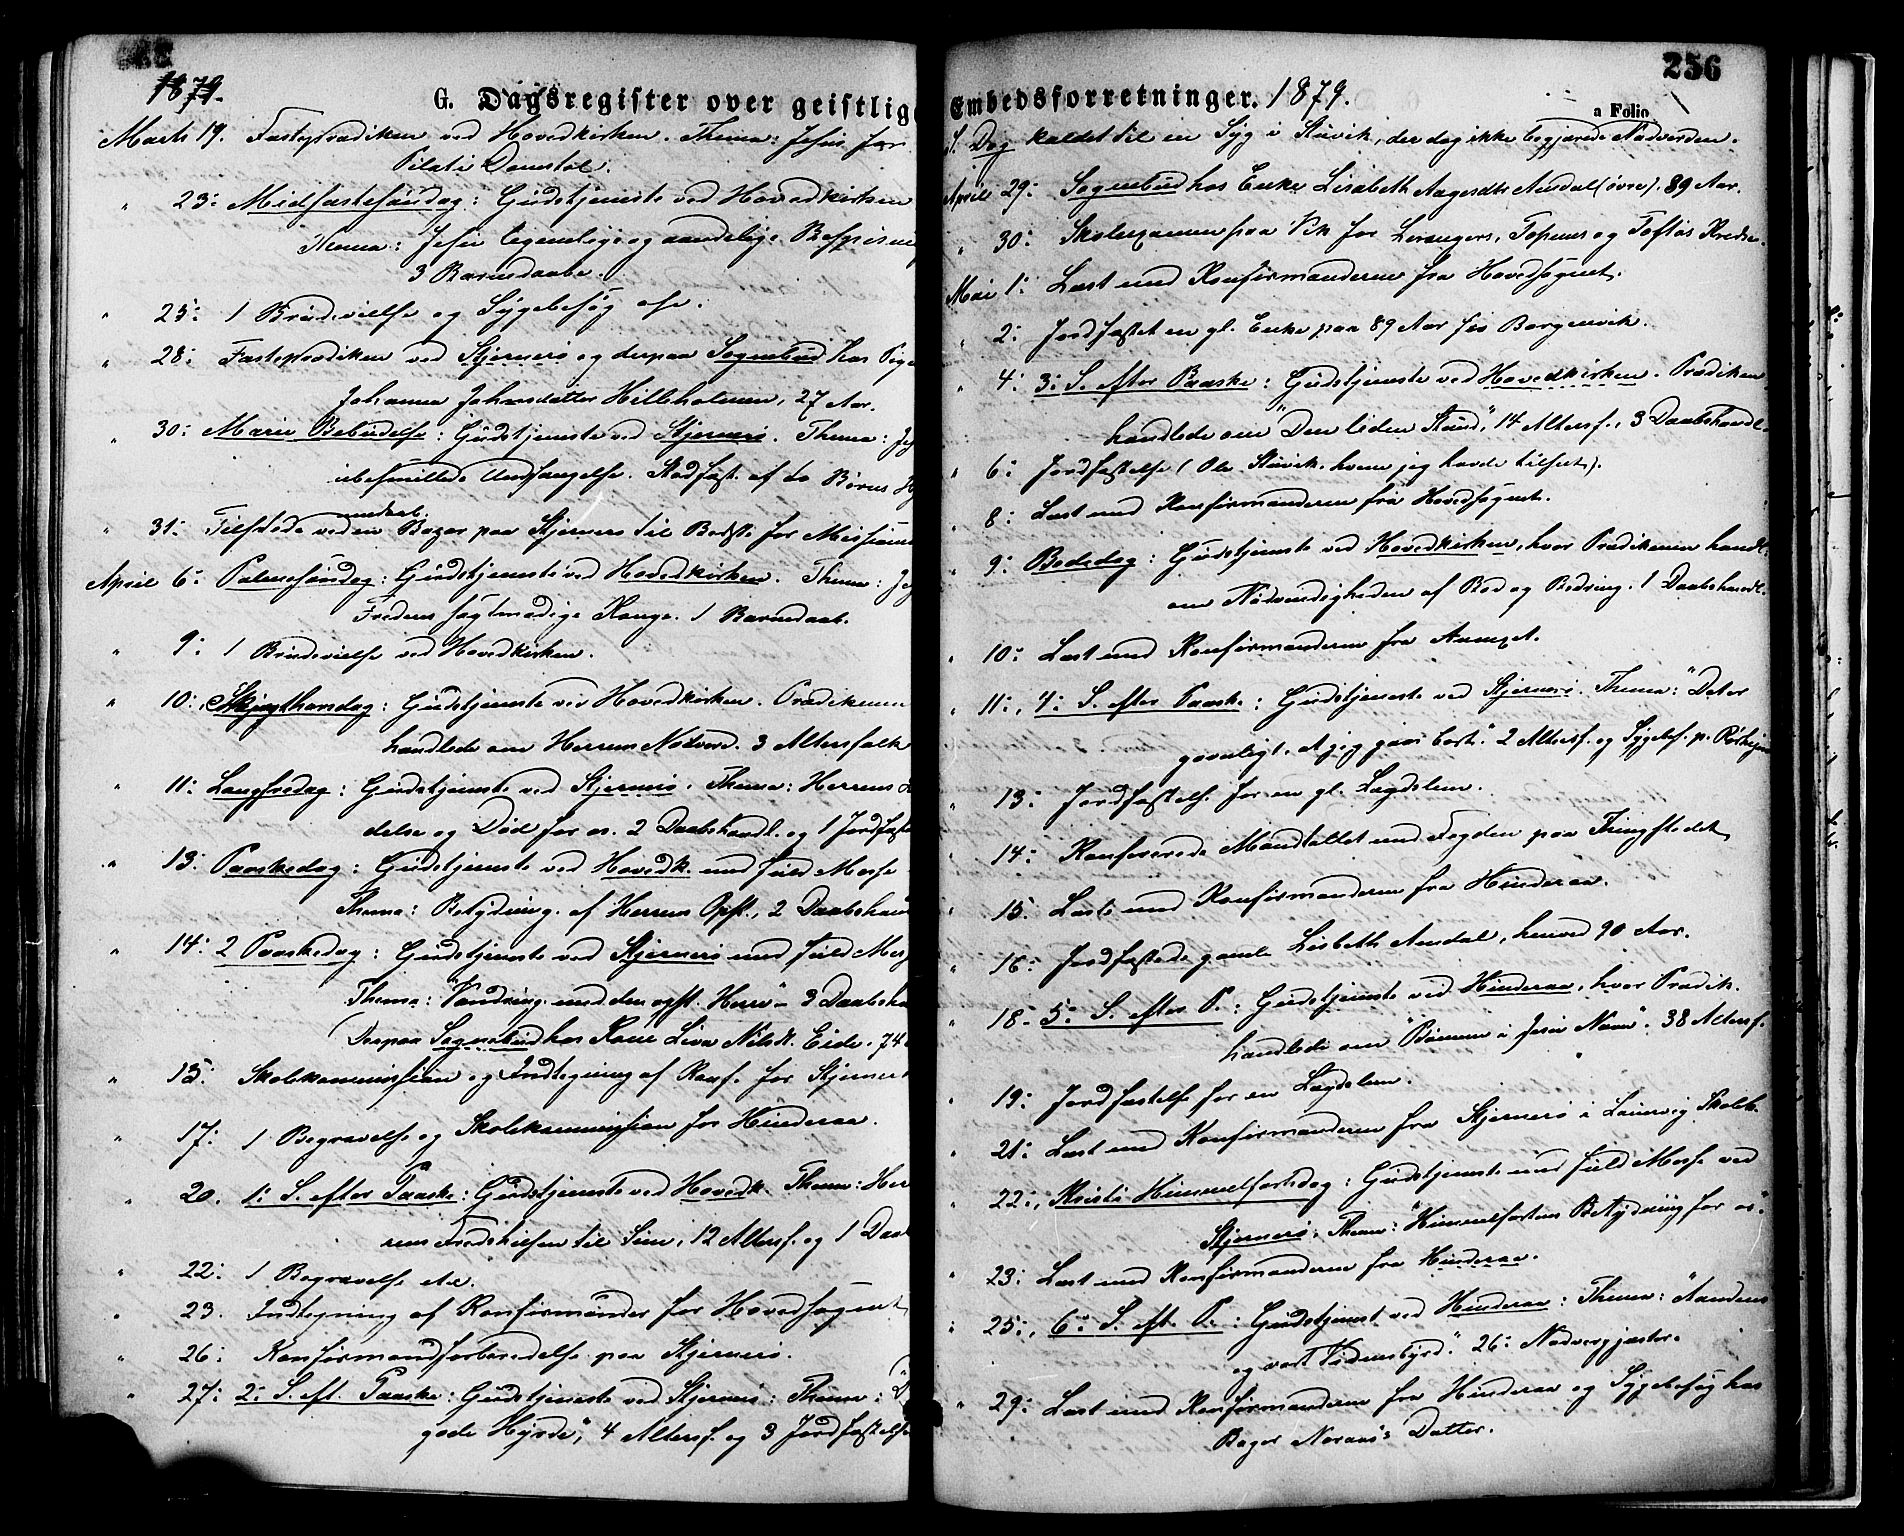 1879.
G. Dagsregister over geistlig
Marts 19. Fasteprædiken ved Hovedkirken. Thema: Jesus for
Pilati Domstol.
" 23: Midfastesøndag: Gudstjeneste ved Hovedkirken
Thema: Jesu legemlige og aandelige Bespisning
3 Barnedaabe.
" 25: 1 Brudevielse og Sygebesøg
" 28: Fasteprædiken ved Stjernerø og derpaa Sognebud hos Pige
Johanna Johnsdatter Hilleholmen, 27 Aar.
" 30: Mariæ Bebudelse: Gudstjeneste ved Stjernerø. Thema: Je
ubesmittede Undfangelse. Stadfæst. af to Børns
" 31: Tilstede ved en Bazar paa Stjernerø til Bedste for Missionen
April 6: Palmesøndag: Gudstjeneste ved Hovedkirken. Thema:
Fredens sagtmodige Konge. 1 Barnedaab.
" 9: 1 Brudevielse ved Hovedkirken.
" 10: Skjærthorsdag: Gudstjeneste ved Hovedkirken. Prædikenen
handlede om Herrens Nadvere. 3 Altersfolk
" 11: Langfredag: Gudstjeneste ved Stjernerø. Thema: Herrens
delse og Død for os. 2 Daabshandl. og 1 Jordfæst
" 13: Paaskedag: Gudstjeneste ved Hovedk. med fuld Messe
Thema: Betydning. af Herrens Opst., 2 Daabshan
" 14: 2 Paaskedag: Gudstjeneste ved Stjernerø med fuld Mes
Thema: "Vandring med den opst. Herre" – 3 Daabsha
(Derpaa Sognebud hos Kone Liva Nilsdt. Eide, 74
" 15: Skolekommission og Indtegning af Konf. for Stjerner
" 17: 1 Begravelse og Skolekommission for Hinderaa.
" 20. 1: S. efter Paaske: Gudstjeneste ved Hovedk. Thema: Her
rens Fredshilsen til Sine, 12 Altersf. og 1 Daab
" 22: 1 Begravelse etc.
" 23. Indtegning af Konfirmander for Hovedsognet
" 26: Konfirmandforberedelse paa Stjernerø.
" 27: 2: S. eft. Paaske: Gudstjeneste ved Stjernerø: Thema: "D
gode Hyrde", 4 Altersf. og 3 Jordfæstelse
256
Embedsforretninger. 1879.
a Folio
S. Dag kaldet til en Syg i Stuvik, der dog ikke begjærede Nadverden.
April 29: Sognebud hos Enke Lisabeth Aagesdtr. Amdal (øvre), 89 Aar.
" 30: Skolexamen paa Vik for Levangers, Topnes og Toftøs Kredse.
Mai 1: Læst med Konfirmanderne fra Hovedsognet.
" 2: Jordfæstet en gl. Enke paa 89 Aar fra Borgenvik.
" 4: 3: S. efter Paaske: Gudstjeneste ved Hovedkirken. Prædiken
handlede om "Den liden Stund", 14 Altersf., 3 Daabshandl.
" 6: Jordfæstelse (Ole Stuvik, hvem jeg havde tilseet).
" 8: Læst med Konfirmanderne fra Hovedsognet.
" 9: Bededag: Gudstjeneste ved Hovedkirken, hvor Prædikenen handl:
om Nødvendigheden af Bod og Bedring. 1 Daabshandl.
" 10: Læst med Konfirmanderne fra Annexet.
" 11: 4: S. efter Paaske: Gudstjeneste ved Stjernerø. Thema: "Det er
gavnligt, at jeg gaar bort". 2 Altersf. og Sygebes. p.
" 13: Jordfæstelse for en gl. Lægdslem.
" 14: Konfererede Mandtallet med Fogden paa Thingstedet
" 15. Læste med Konfirmanderne fra Hinderaa.
" 16: Jordfæstede gamle Lisbeth Amdal, henved 90 Aar.
" 18– 5: S. efter P.: Gudstjeneste ved Hinderaa, hvor Prædik.
handlede om "Bønnen i Jesu Navn". 38 Altersf.
" 19: Jordfæstelse for en Lægdslem.
" 21: Læst med Konfirmanderne fra Stjernerø i Leirvig Skoleh.
" 22: Kristi Himmelfartsdag: Gudstjeneste med fuld Messe ved
Stjernerø, Thema: "Himmelfartens Betydning for os".
" 23: Læst med Konfirmanderne fra Hinderaa.
" 25: 6: S. eft. P.: Gudstjenest ved Hinderaa: Thema: "Aandens
og vort Vidnesbyrd". 26: Nadvergjæster.
" 29: Læst med Konfirmanderne fra Hinderaa og Sygebesøg hos
Bager Noraas's Datter.